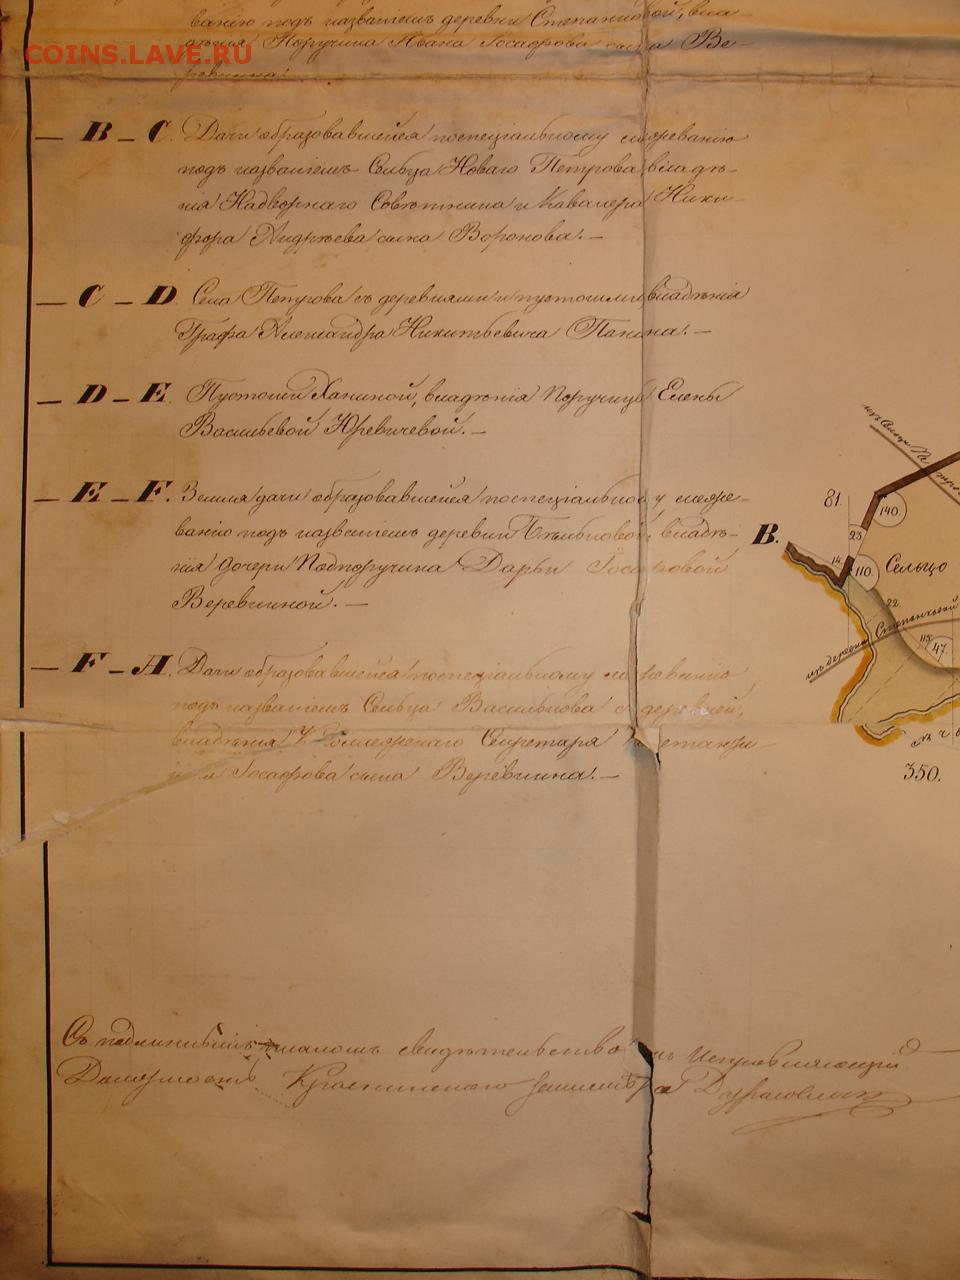 ванію подъ названіемъ деревни Степаниковой, вла-
дѣнія Поручика Ивана Іосафова сына Ве-
ревкина.
COINS.LAVE.RU
— B — C. Дачи образовавшейся поспеціальному межеванію
подъ названіемъ Сельца Новаго Петрова, владѣ-
нія Надворнаго Совѣтника и Кавалера Ники-
фора Андрѣева сына Воронова. —
— C — D. Села Петрова съ деревнями и пустошми, владѣнія
Графа Александра Никитьевича Панина. —
— D — E. Пустоши Ханиной, владѣнія Поручицы Елены
Васильевой Юревичевой. —
— E — F. Земля дачи образовавшейся поспеціальному меже-
ванію подъ названіемъ деревни владѣ-
нія дочери Подпоручика Дарьи Іосафовой
Веревкиной. —
— F — A. Дачи образовавшейся поспеціальному межеванію
подъ названіемъ Сельца Василькова с деревней,
владѣнія Коллежскаго Секретаря
Іосафова сына Веревкина. —
B.
81.
140.
23.
14.
110.
Сельцо
22.
изъ деревни Степаньковой
115.
47.
350.
Съ подлиннымъ свидѣтельствовалъ Исправляющій
Должность Краснинскаго Землемѣра